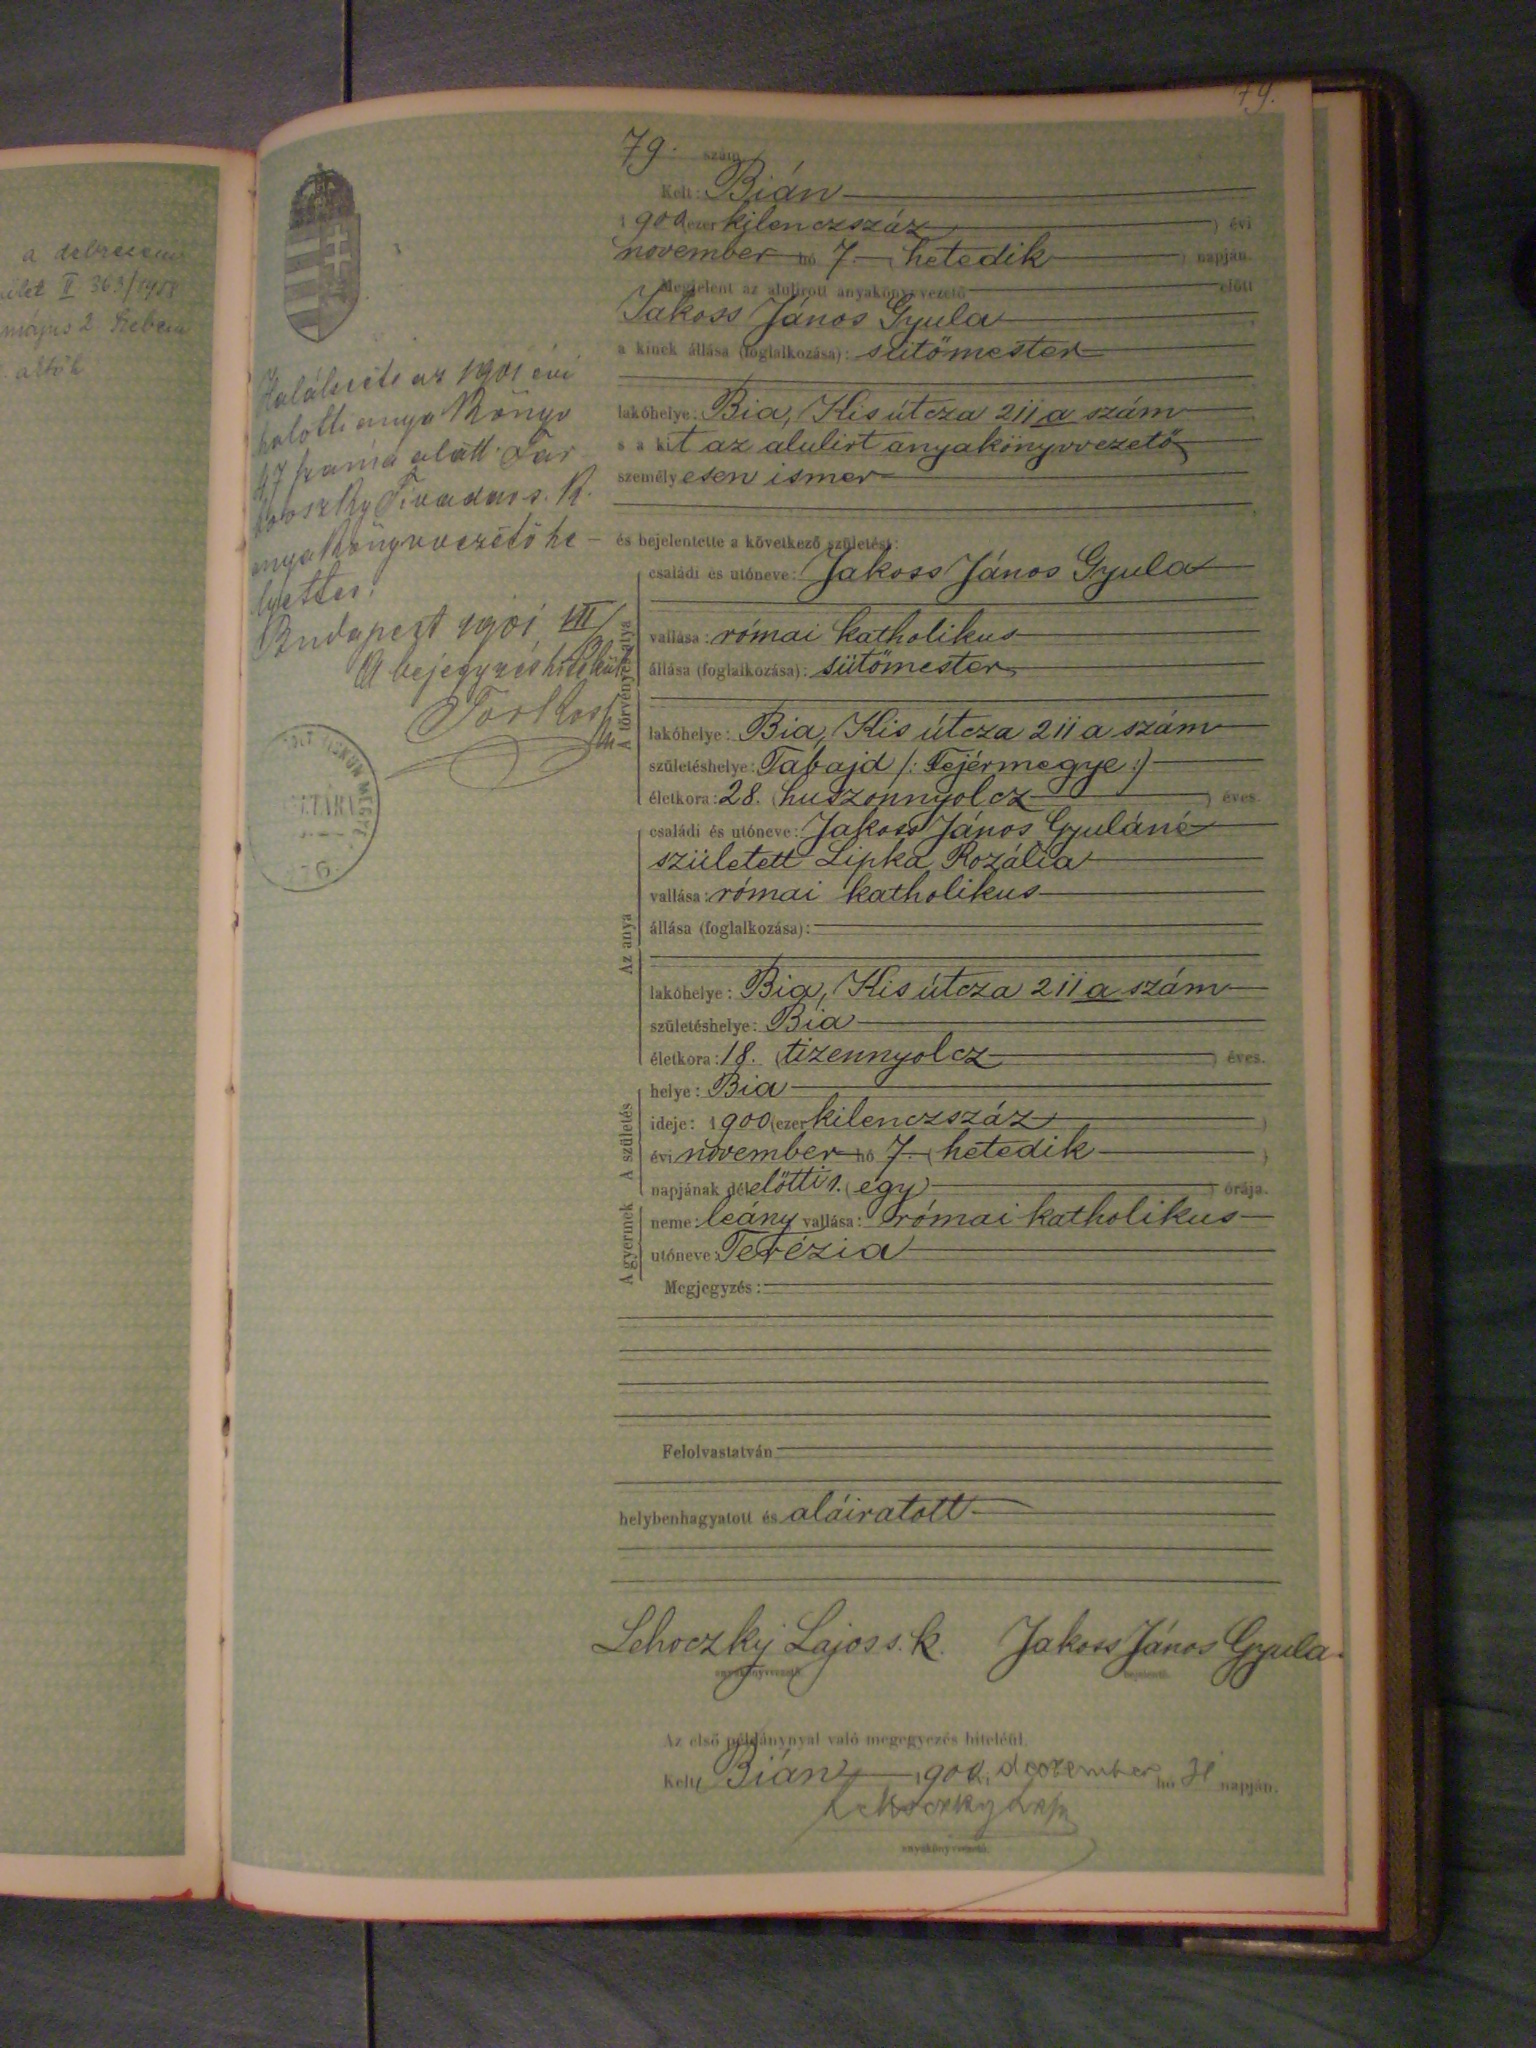 79.
a debreceni
II 363/1958
május 2
79. szám
Kelt: Bián
1900 (ezer kilenczszáz) évi
november hó 7. (hetedik) napján.
Megjelent az alulirott anyakönyvvezető előtt
Jakoss János Gyula
a kinek állása (foglalkozása): sütőmester
lakóhelye: Bia, Kis útcza 211 a szám
s a kit az alulirt anyakönyvvezető
személyesen ismer
és bejelentette a következő születést:
A törvényes atya
családi és utóneve: Jakoss János Gyula
vallása: római katholikus
állása (foglalkozása): sütőmester
lakóhelye: Bia, Kis útcza 211 a szám
születéshelye: Tabajd /: Fejérmegye :/
életkora: 28. (huszonnyolcz) éves.
Az anya
családi és utóneve: Jakoss János Gyuláné
született Lipka Rozália
vallása: római katholikus
állása (foglalkozása):
lakóhelye: Bia, Kis útcza 211 a szám
születéshelye: Bia
életkora: 18. (tizennyolcz) éves.
A születés
helye: Bia
ideje: 1900 (ezer kilenczszáz)
évi november hó 7. (hetedik)
napjának délelőtti 1. (egy) órája.
A gyermek
neme: leány vallása: római katholikus
utóneve: Terézia
Megjegyzés:
Felolvastatván
helybenhagyatott és aláiratott
Lehoczky Lajos s. k. Jakoss János Gyula
anyakönyvvezető bejelentő.
Az első példánynyal való megegyezés hiteléül.
Kelt Bián, 1900, deczember hó 31 napján.
Lehoczky Lajos
anyakönyvvezető.
Halálesete az 1901 évi
halotti anya könyv
47 száma alatt
Tivadar s. k.
anyakönyvvezető he-
lyettes.
Budapest 1901 VIII/
A bejegyzés hiteléül